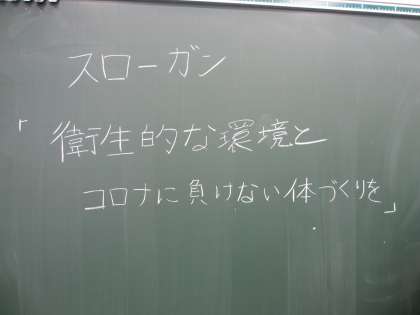 スローガン
「衛生的な環境と
コロナに負けない体づくりを」